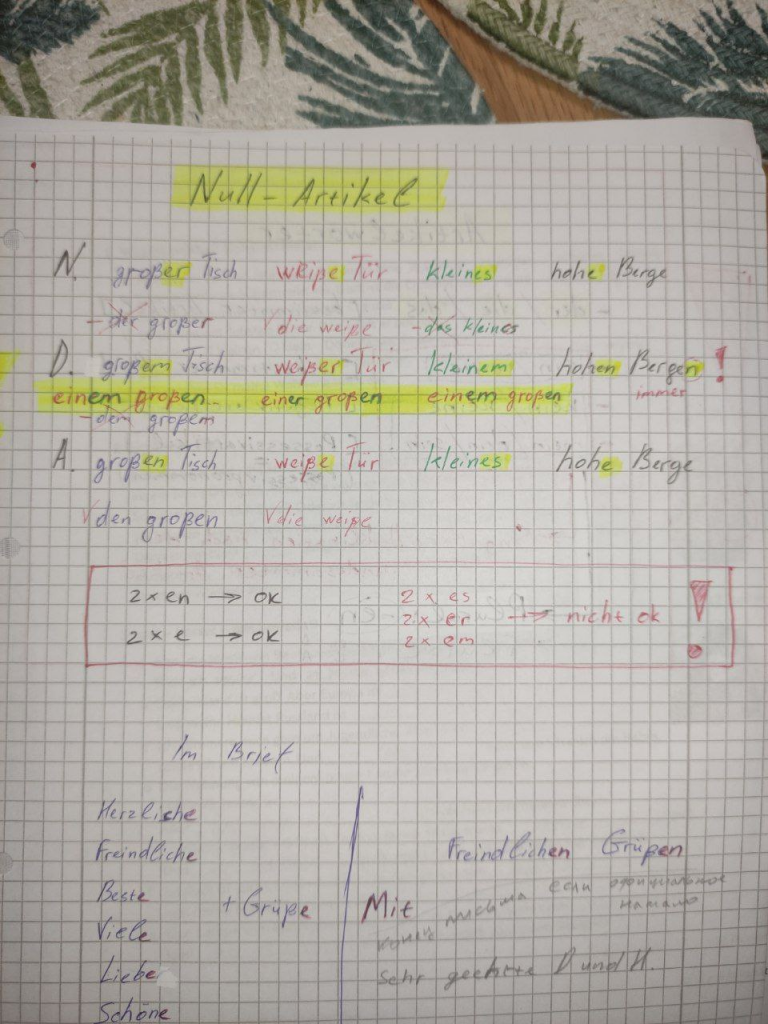 Null-Artikel
N. großer Tisch weiße Tür kleines hohe Berge
- der großer √ die weiße - das kleines
D. großem Tisch weißer Tür kleinem hohen Bergen !
einem großen.. einer großen einem großen immer
- dem großem
A. großen Tisch weiße Tür kleines hohe Berge
√ den großen √ die weiße
2 x en → ok 2 x es
2 x er → nicht ok !
2 x e → ok 2 x em
Im Brief
Herzliche
Freindliche Freindlichen Grüßen
Beste если официальное
Viele + Grüße Mit конец письма начало
Liebe Sehr geehrte D und H.
Schöne